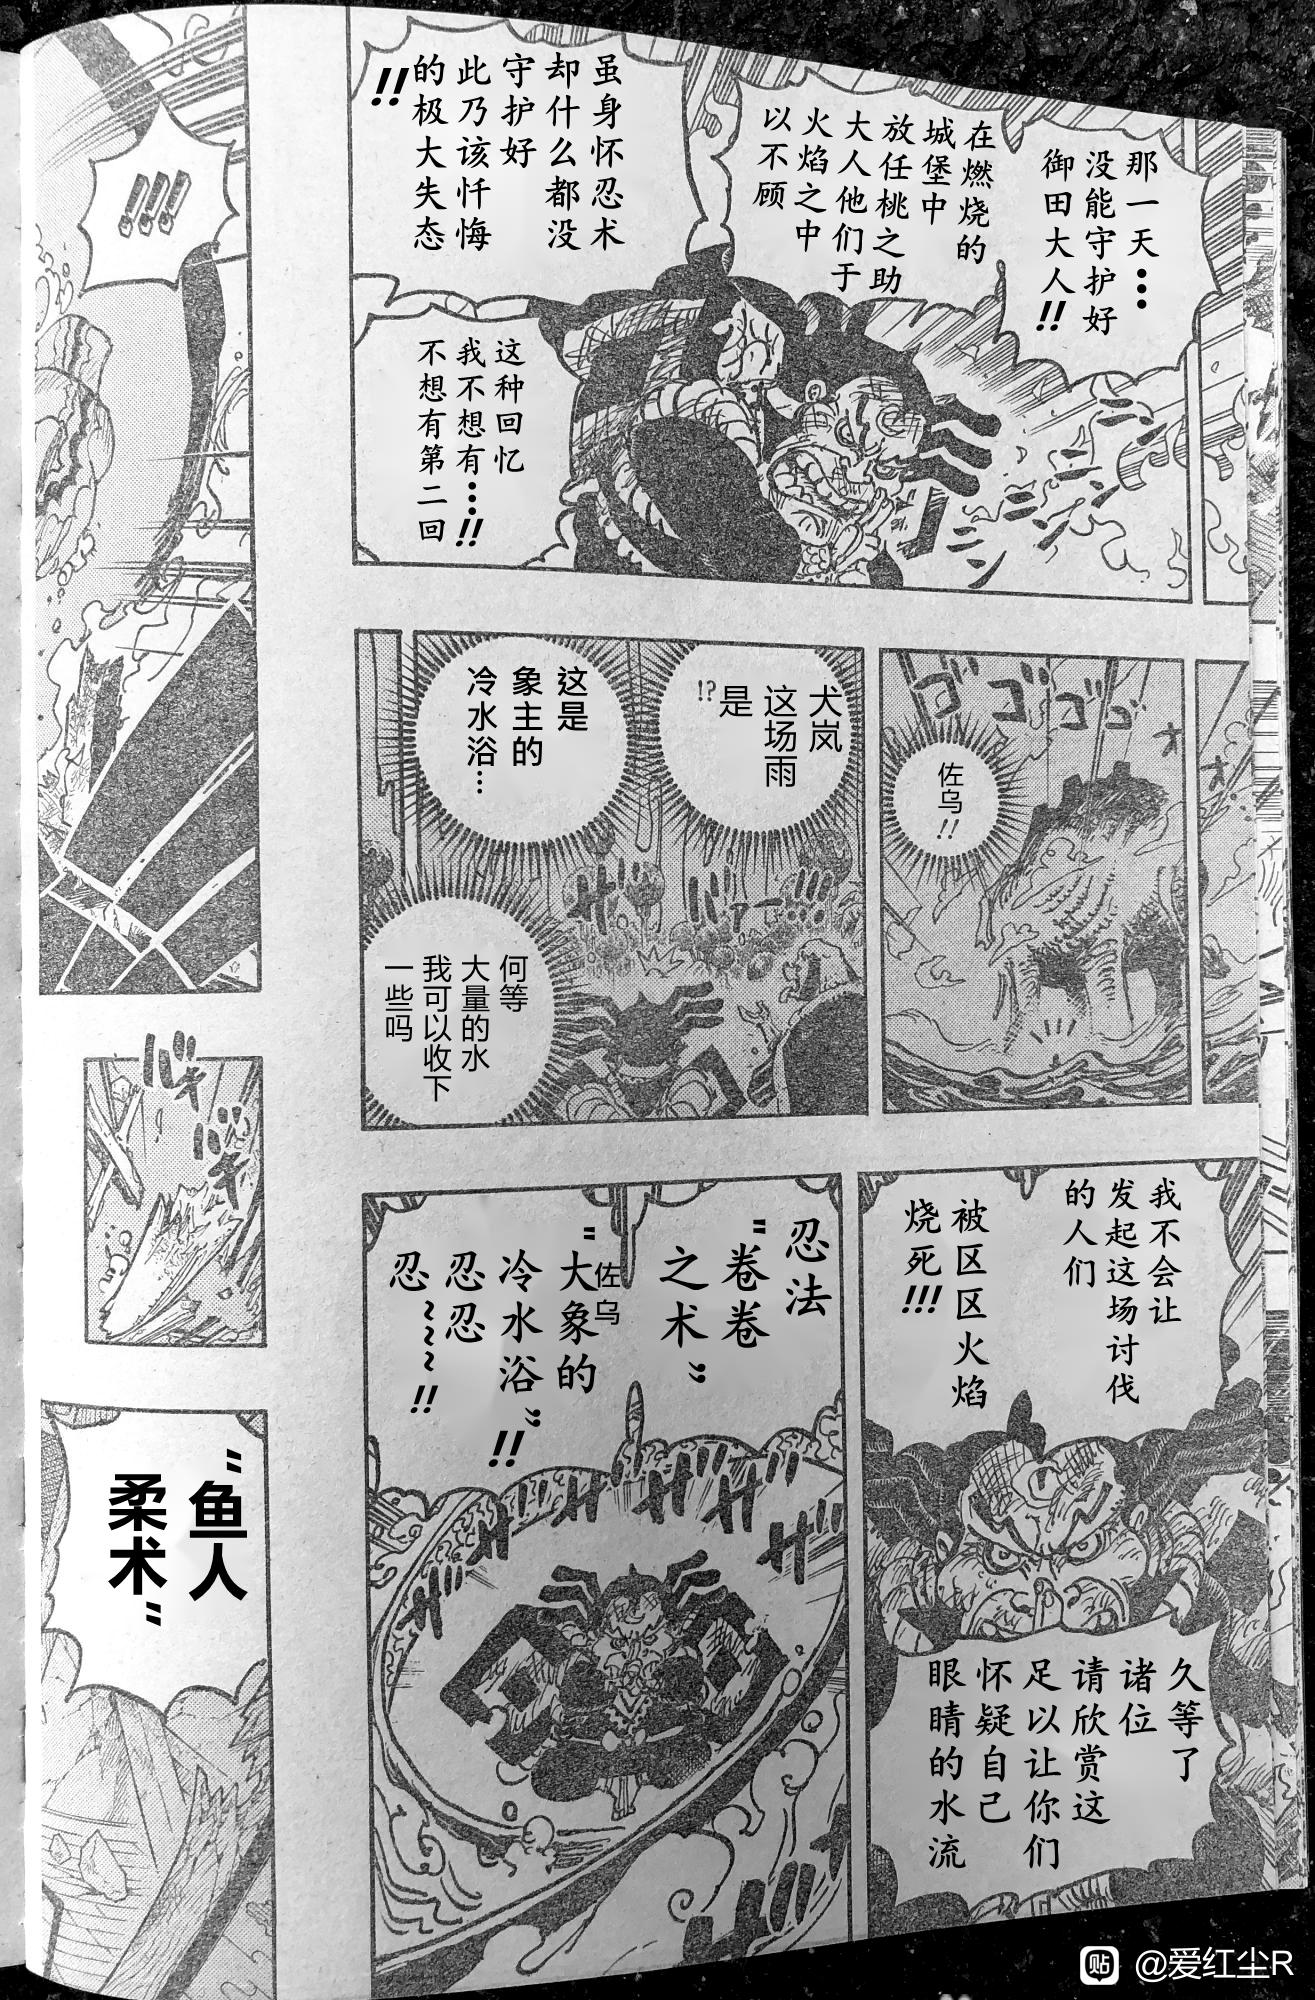 那一天…
没能守护好
御田大人!!
在燃烧的
城堡中
放任桃之助
大人他们于
火焰之中
以不顾
虽身怀忍术
却什么都没
守护好
此乃该忏悔
的极大失态
!!
这种回忆
我不想有…!!
不想有第二回
ニン
ニン
ニン
ゴゴゴゴ
オオ
佐乌!!
犬岚
这场雨
是
!?
这是
象主的
冷水浴…
ザバァーー…!!!
何等
大量的水
我可以收下
一些吗
我不会让
发起这场讨伐
的人们
被区区火焰
烧死!!!
久等了
诸位
请欣赏这
足以让你们
怀疑自己
眼睛的水流
忍法
"卷卷
之术"
佐乌
"大象的
冷水浴"!!
忍忍
忍~~~!!
ザザザザザザザ
!!!!
バキバキ
"鱼人
柔术"
贴 @爱红尘R